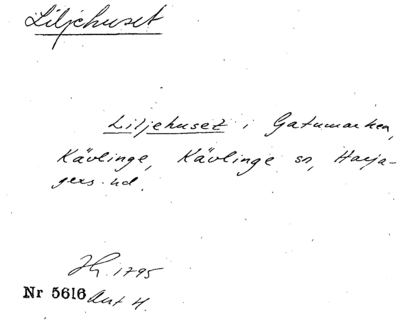 Liljehuset
Liljehuset i Gatumarken,
Kävlinge, Kävlinge sn, Harja-
gers hd.
Jb. 1795
Nr 5616 Ant H.